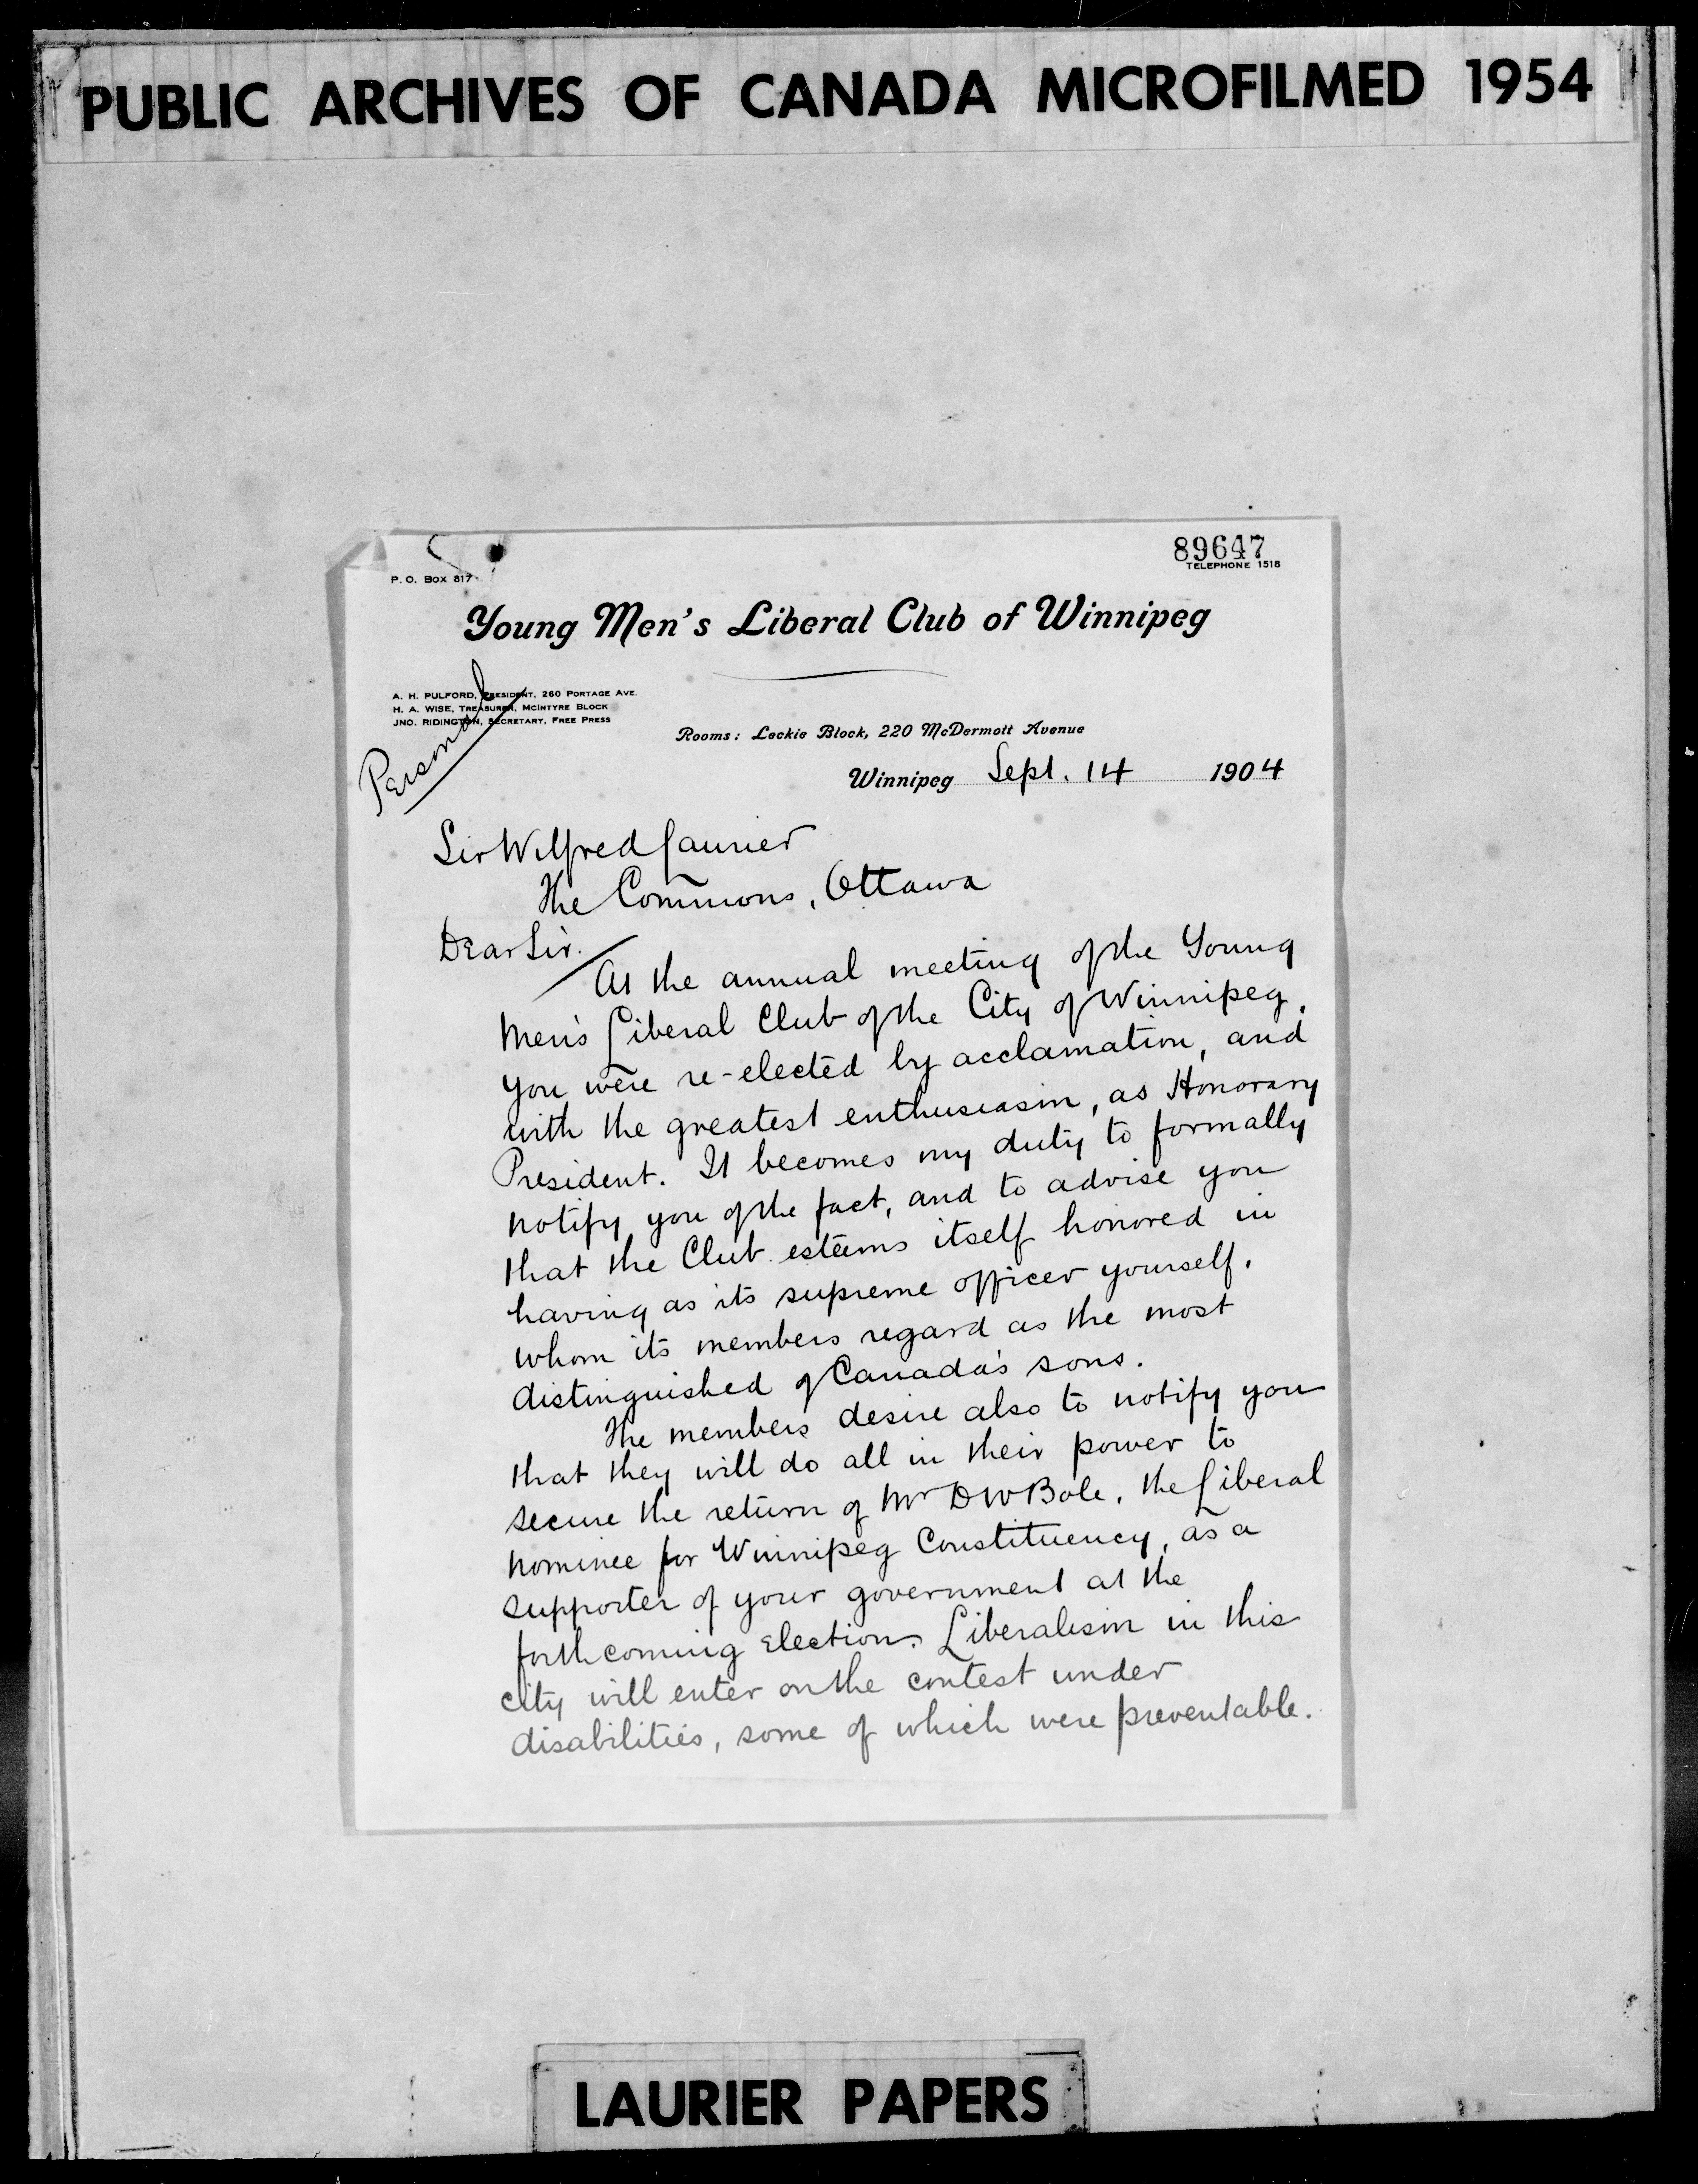 PUBLIC ARCHIVES OF CANADA MICROFILMED 1954
89647
P. O. BOX 817
TELEPHONE 1518
Young Men's Liberal Club of Winnipeg
A. H. PULFORD, PRESIDENT, 260 PORTAGE AVE.
H. A. WISE, TREASURER, MCINTYRE BLOCK
JNO. RIDINGTON, SECRETARY, FREE PRESS
Personal
Rooms: Leckie Block, 220 McDermott Avenue
Winnipeg Sept. 14 1904
Sir Wilfred Laurier
The Commons, Ottawa
Dear Sir.
At the annual meeting of the Young
Men's Liberal Club of the City of Winnipeg,
you were re-elected by acclamation, and
with the greatest enthusiasm, as Honorary
President. It becomes my duty to formally
notify you of the fact, and to advise you
that the Club esteems itself honored in
having as its supreme officer yourself,
whom its members regard as the most
distinguished of Canada's sons.
The members desire also to notify you
that they will do all in their power to
secure the return of Mr D W Bole, the Liberal
nominee for Winnipeg Constituency, as a
supporter of your government at the
forthcoming election. Liberalism in this
city will enter on the contest under
disabilities, some of which were preventable.
LAURIER PAPERS